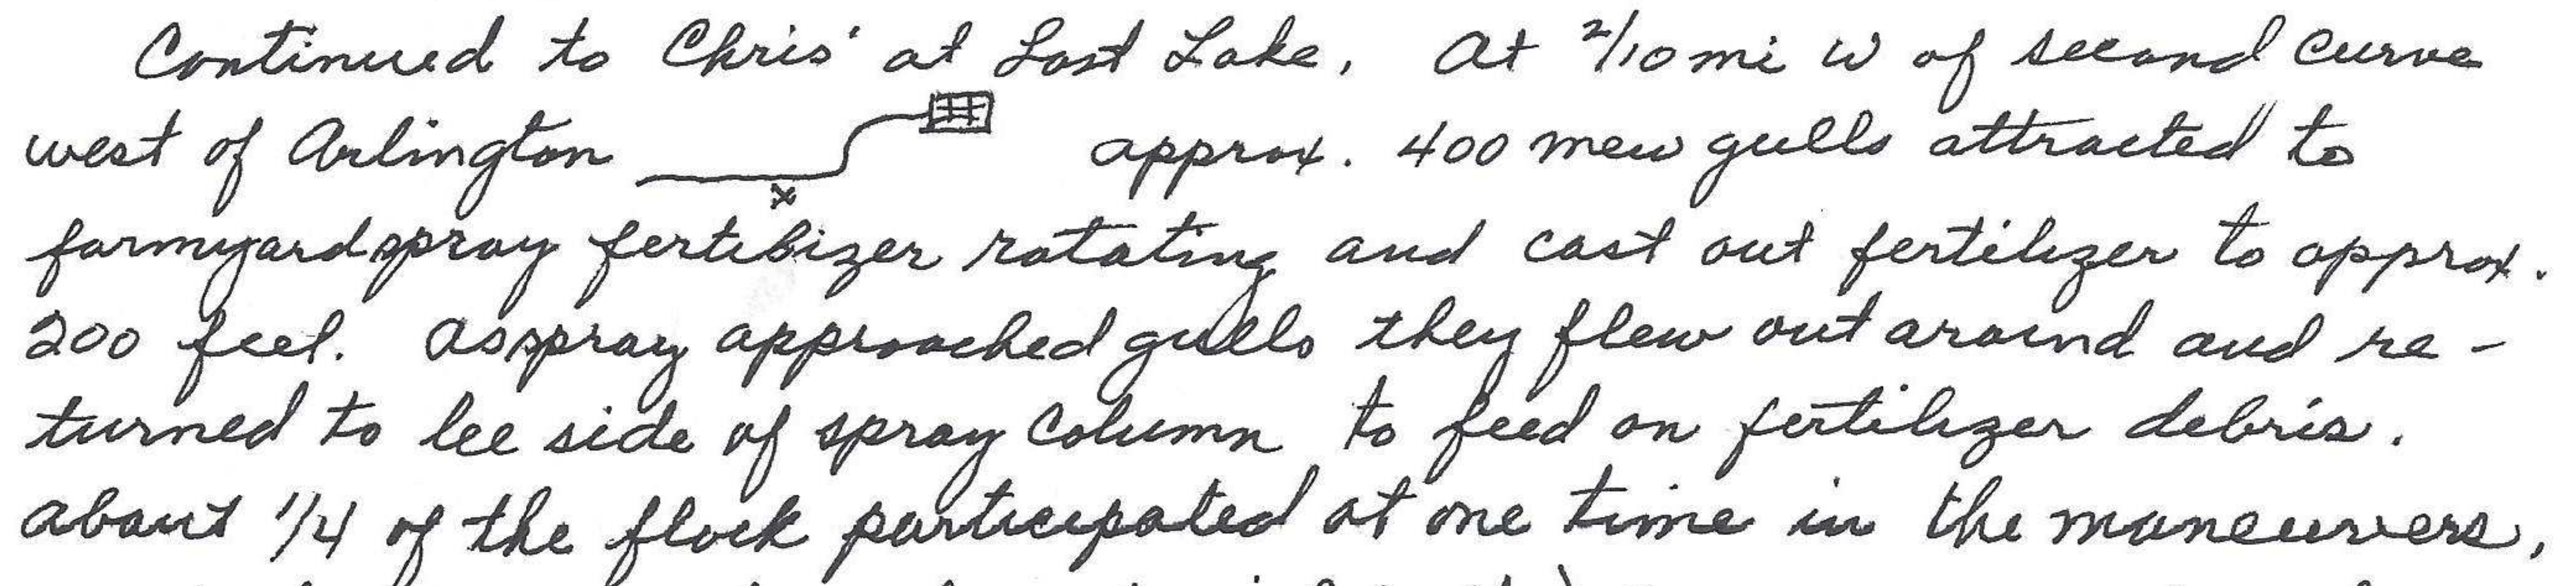 Continued to Chris' at Lost Lake. At 2/10 mi W of second curve
west of Arlington x approx. 400 mew gulls attracted to
farmyard spray fertilizer rotating and cast out fertilizer to approx.
200 feet. As spray approached gulls they flew out around and re-
turned to lee side of spray column to feed on fertilizer debris.
About 1/4 of the flock participated at one time in the maneuvers,